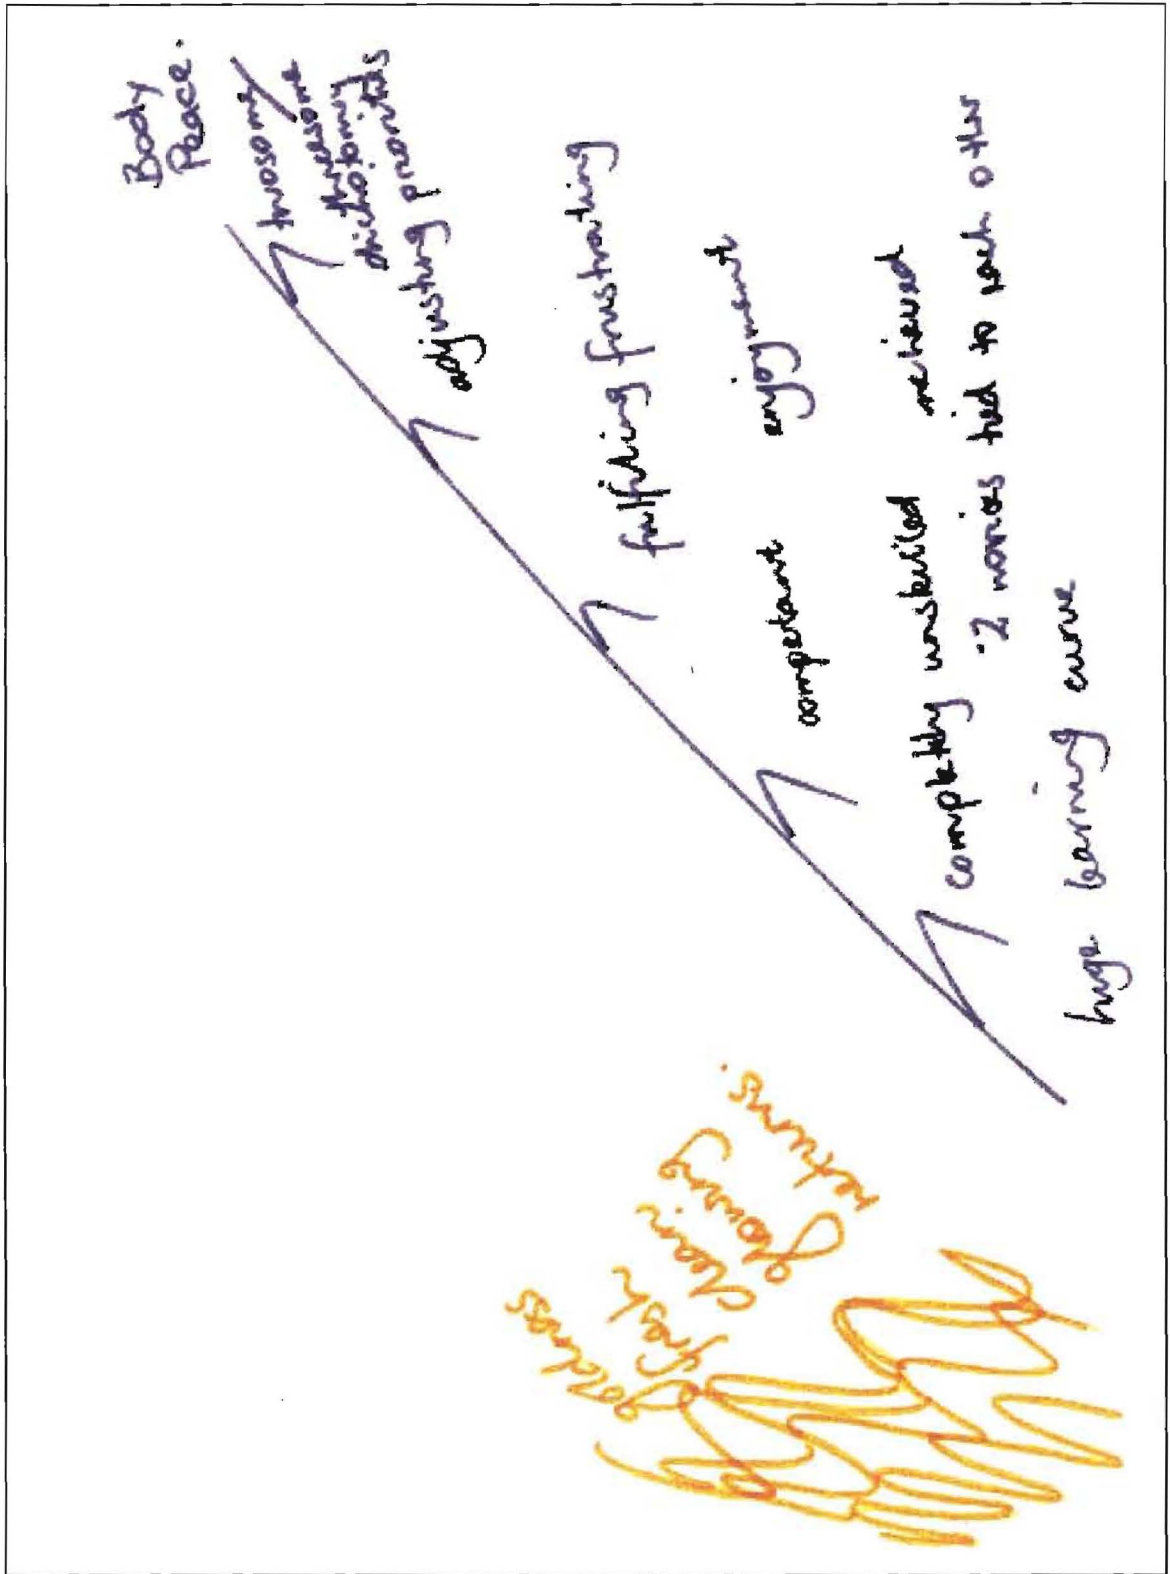 Body
Peace.
twosome /
threesome
dichotomy
adjusting priorities
fulfilling frustrating
competant enjoyment
completly unskilled relieved
·2 novices tied to each other
huge learning curve
goldness
fresh
clean
glowing
returns.